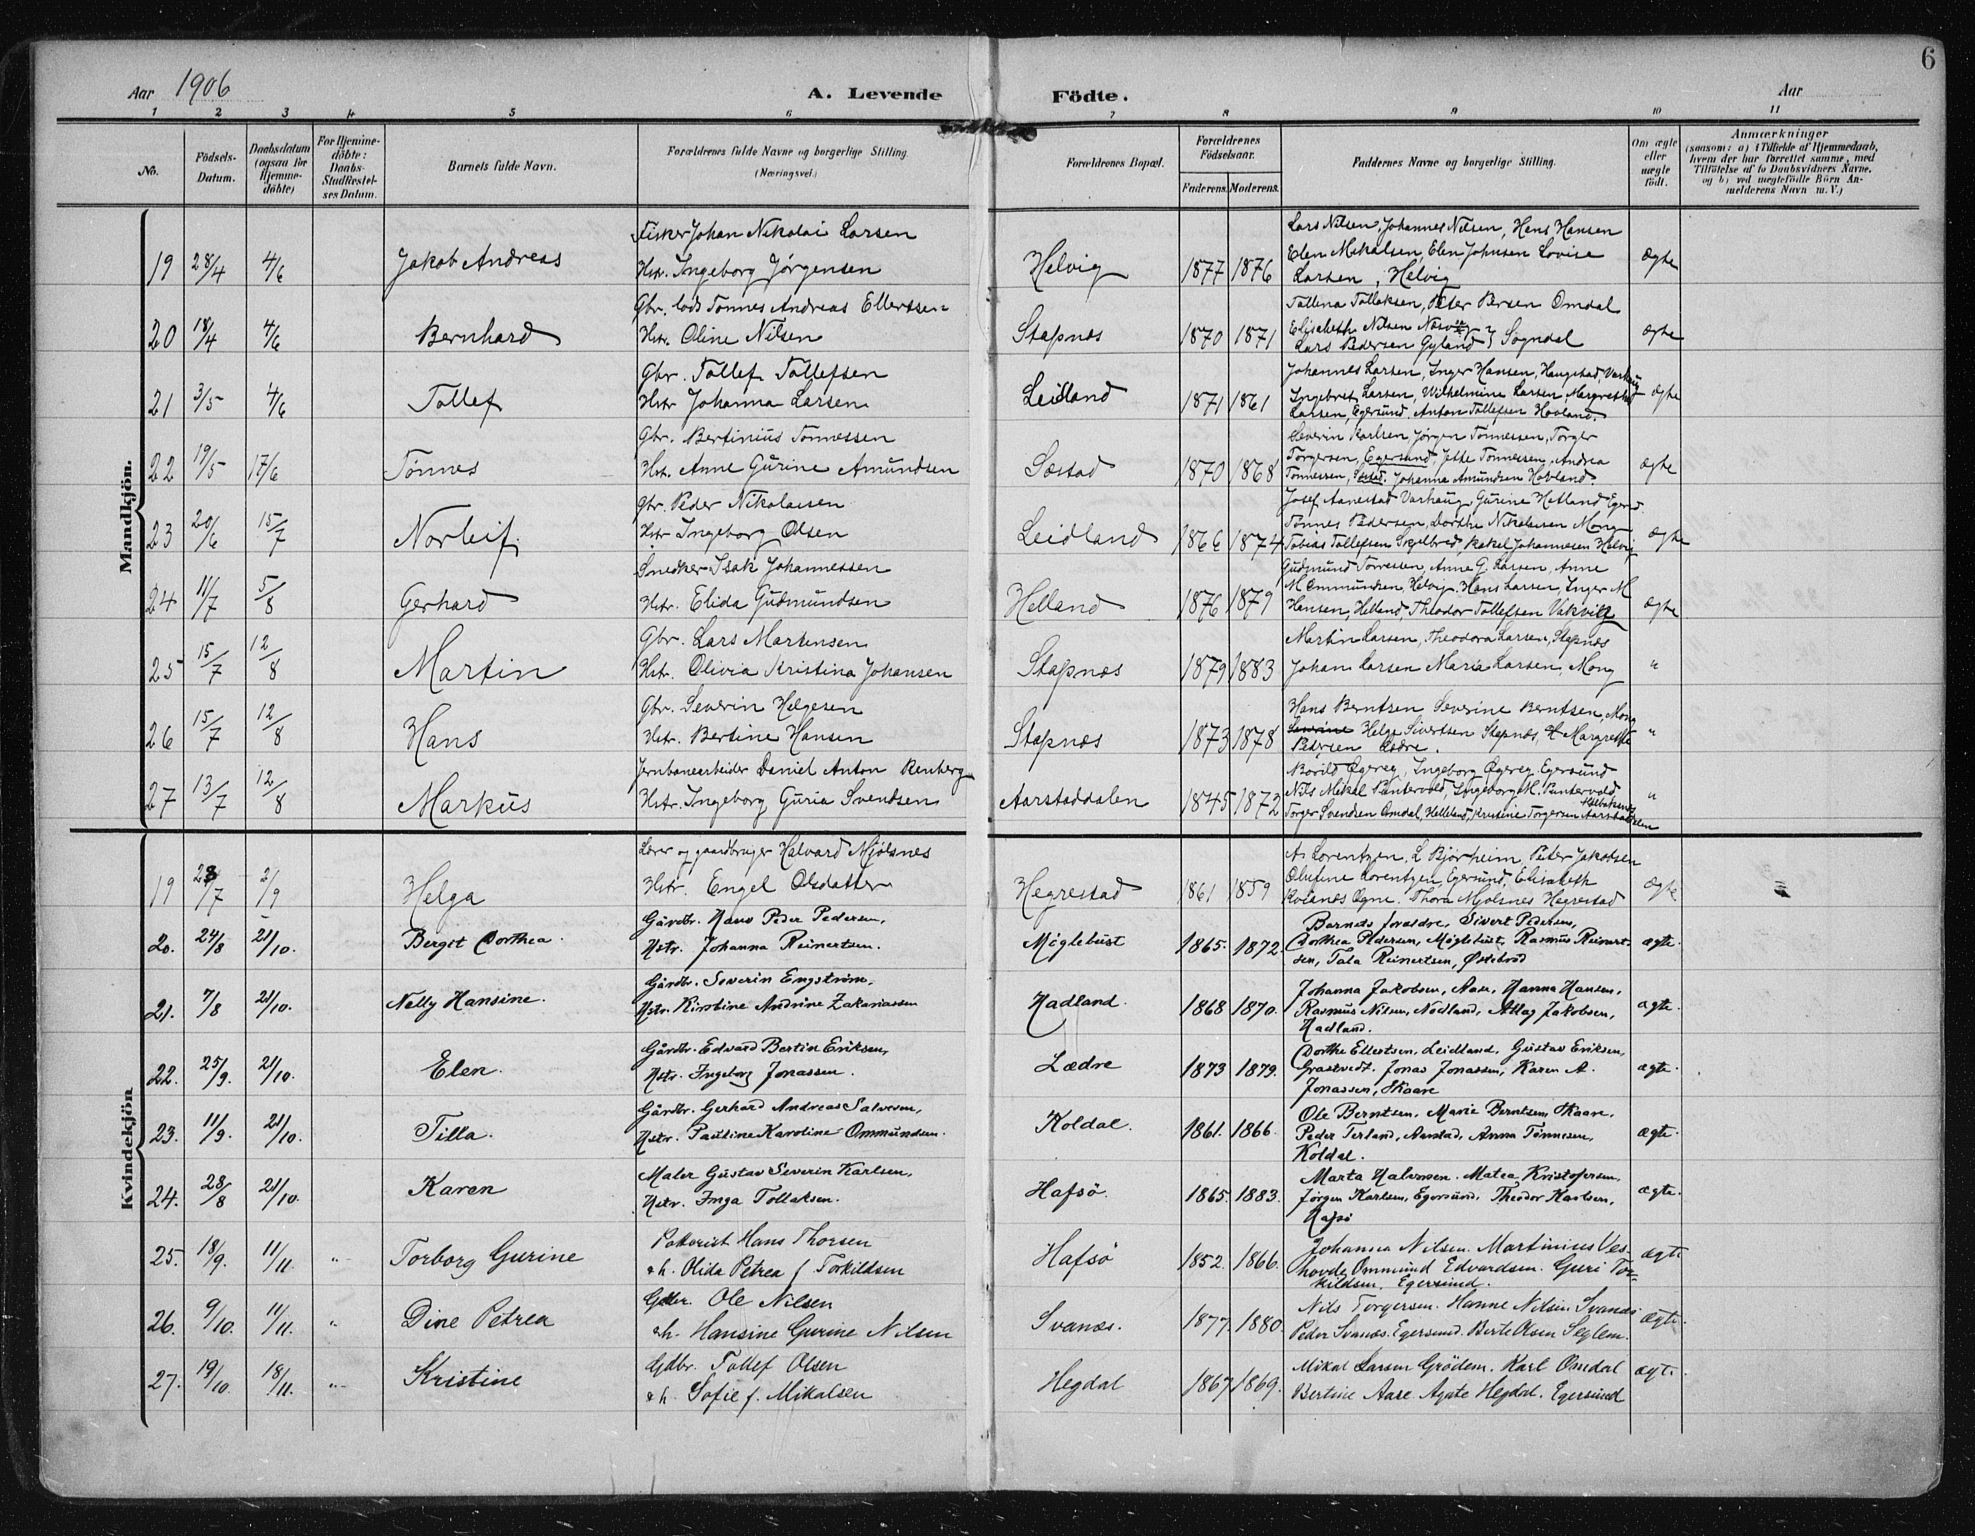 6
Aar 1906 A. Levende Födte. Aar
1 2 3 4 5 6 7 8 9 10 11
No.
Födsels-Datum.
Daabsdatum (ogsaa for Hjemmedöbte)
For Hjemmedöbte: Daabs-Stadfæstelses Datum.
Barnets fulde Navn.
Forældrenes fulde Navne og borgerlige Stilling. (Næringsvei.)
Forældrenes Bopæl.
Forældrenes Födselsaar.
Faderens. Moderens.
Faddernes Navne og borgerlige Stilling.
Om ægte eller uægte födt.
Anmærkninger (saasom: a) i Tilfælde af Hjemmedaab, hvem der har forrettet samme, med Tilföielse af to Daabsvidners Navne. og b) ved uægtefödte Börn Anmelderens Navn m. V.)
Mandkjön.
19 28/4 4/6 Jakob Andreas
Fisker Johan Nikolai Larsen
Hstr. Ingeborg Jørgensen
Helvig 1877 1876
Lars Nilsen, Johannes Nilsen, Hans Hansen
Elen Mikalsen, Elen Johnsen Lovise
Larsen, Helvig
ægte
20 18/4 4/6 Bernhard
Gbr. Lods Tønnes Andreas Ellertsen
Hstr. Oline Nilsen
Stapnes 1870 1871
Tallena Tollaksen, Peter Persen Omdal
Elisabeth Nilsen
Lars Pedersen Gyland } Sogndal
ægte
21 3/5 4/6 Tollef
Gbr. Tollef Tollefsen
Hstr Johanna Larsen
Leidland 1871 1861
Johannes Larsen, Inger Hansen, Haugstad, Varhaug
Ingebret Larsen, Wilhelmine Larsen, Margrethe
Larsen, Egersund. Anton Tollefsen Hovland.
ægte
22 19/5 17/6 Tønnes
Gbr. Bertinius Tønnessen
Hstr. Anne Gurine Amundsen
Sæstad 1870 1868
Severin Karlsen, Jørgen Tønnessen, Torger
Torgersen, Egersund, Jette Tønnessen, Andrea
Tønnessen, Sæstad. Johanna Amundsen Hovland.
ægte
23 20/6 15/7 Norleif.
Gbr. Peder Nikolaisen
Hstr Ingeborg Olsen
Leidland 1866 1874
Josef Aanestad Varhaug, Gurine Hetland Egersd.
Tønnes Pedersen, Dorthe Nikolaisen Mong
Tobias Tollefsen Skjelbred, Rakel Johannesen Helvig
ægte
24 11/7 5/8 Gerhard
Snedker Isak Johannessen
Hstr. Elida Gudmundsen
Helland 1876 1879
Gudmund Tønnessen, Anne G. Larsen, Anne
M. Ommundsen, Helvig. Hans Larsen, Inger M
Hansen, Helland, Theodor Tollefsen
ægte
25 15/7 12/8 Martin
Gbr. Lars Martensen
Hstr. Olivia Kristina Johansen
Stapnes 1879 1883
Martin Larsen, Theodora Larsen, Stapnes
Johan Larsen Maria Larsen, Mong
"
26 15/7 12/8 Hans
Gbr. Severin Helgesen
Hstr. Bertine Hansen
Stapnes 1873 1878
Hans Berntsen Severine Berntsen, Mong
Helga Sivertsen Stapnes, Margrethe
Pedersen Lædre.
"
27 13/7 12/8 Markus
Jernbanearbeider Daniel Anton Renberg
Hstr. Ingeborg Guria Svendsen
Aarstaddalen 1845 1872
Borild Øgreg, Ingeborg Øgreg Egersund
Nils Mikal Puntervold, Ingeborg M. Puntervold
Torger Svendsen Omdal, Helleland, Kristine Torgersen Aarstaddalen
"
Kvindekjön
19 28/7 2/9 Helga
Lærer og gaardbruger Halvard Mjølsnes
Hstr. Engel Olsdatter
Hegrestad 1861 1859
A. Lorentzen, L Bjørheim, Peter Jakobsen
Olufine Lorentzen, Egersund, Elisabeth
Kvianes Ogne. Thora Mjølsnes Hegrestad
ægte
20. 24/8 21/10. Bergit Dorthea.
Gårdbr. Hans Peder Pedersen,
Hstr. Johanna Reinertsen.
Møglebust 1865. 1872.
Barnets forældre, Sivert Pedersen,
Dorthea Pedersen, Møglebust, Rasmus Reinert-
sen, Tala Reinertsen, Østebrød
ægte.
21. 7/8 21/10. Nelly Hansine.
Gårdbr. Severin Engstrøm,
Hstr. Kirstine Andrine Zakariassen
Hadland. 1868 1870.
Johanna Jakobsen, Aase, Hanna Hansen,
Rasmus Nilsen, Nodland, Atlag Jakobsen,
Hadland.
ægte.
22. 25/9. 21/10. Elen.
Gårdbr. Edvard Bertin Eriksen,
Hstr. Ingeborg Jonassen.
Lædre 1873 1879.
Dorthe Ellertsen, Leidland, Gustav Eriksen,
Grastvedt. Jonas Jonassen, Karen A.
Jonassen, Skaare
ægte.
23. 11/9. 21/10. Tilla.
Gårdbr. Gerhard Andreas Salvesen,
Hstr. Pauline Karoline Ommundsen.
Koldal. 1861. 1866.
Ole Berntsen, Marie Berntsen, Skaare,
Peder Terland, Aarstad, Anna Tønnesen,
Koldal.
ægte.
24. 28/8 21/10. Karen
Maler Gustav Severin Karlsen,
Hstr. Inga Tollaksen.
Hafsø. 1865. 1883.
Marta Halvorsen. Matea Kristofersen,
Jørgen Karlsen, Egersund. Theodor Karlsen,
Hafsø
ægte.
25. 18/9. 11/11. " Torborg Gurine
Hans Thorsen
& h. Olida Petrea f Torkildsen
Hafsø 1852. 1866.
Johanna Nilsen. Martinius Ves-
hovde Ommund Edvardsen. Guri Tor-
kildsen. Egersund.
ægte
26. 9/10. 11/11. " Dine Petrea
Gdbr. Ole Nilsen
& h. Hansine Gurine Nilsen
Svanæs. 1877. 1880.
Nils Torgersen. Hanne Nilsen Svanæs
Peder Svanæs. Egersund. Berte Olsen Seglem.
ægte.
27. 19/10. 18/11. " Kristine
Gdbr. Tollef Olsen
& h. Sofie f. Mikalsen
Hegdal 1867 1869.
Mikal Larsen Grødem. Karl Omdal
Bertine Aase Agate Hegdal. Egersund
ægte